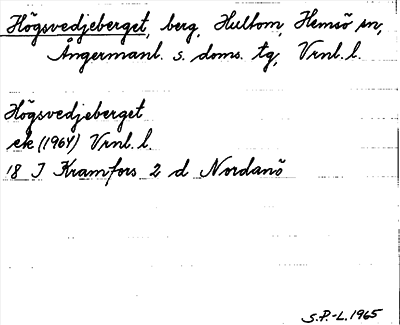 Högsvedjeberget, berg, Hultom, Hemsö sn,
Ångermanl. s. doms. tg, Vrnl. l.
Högsvedjeberget
ek (1964) Vrnl. l.
18 I Kramfors 2 d Nordanö
S.P.-L. 1965